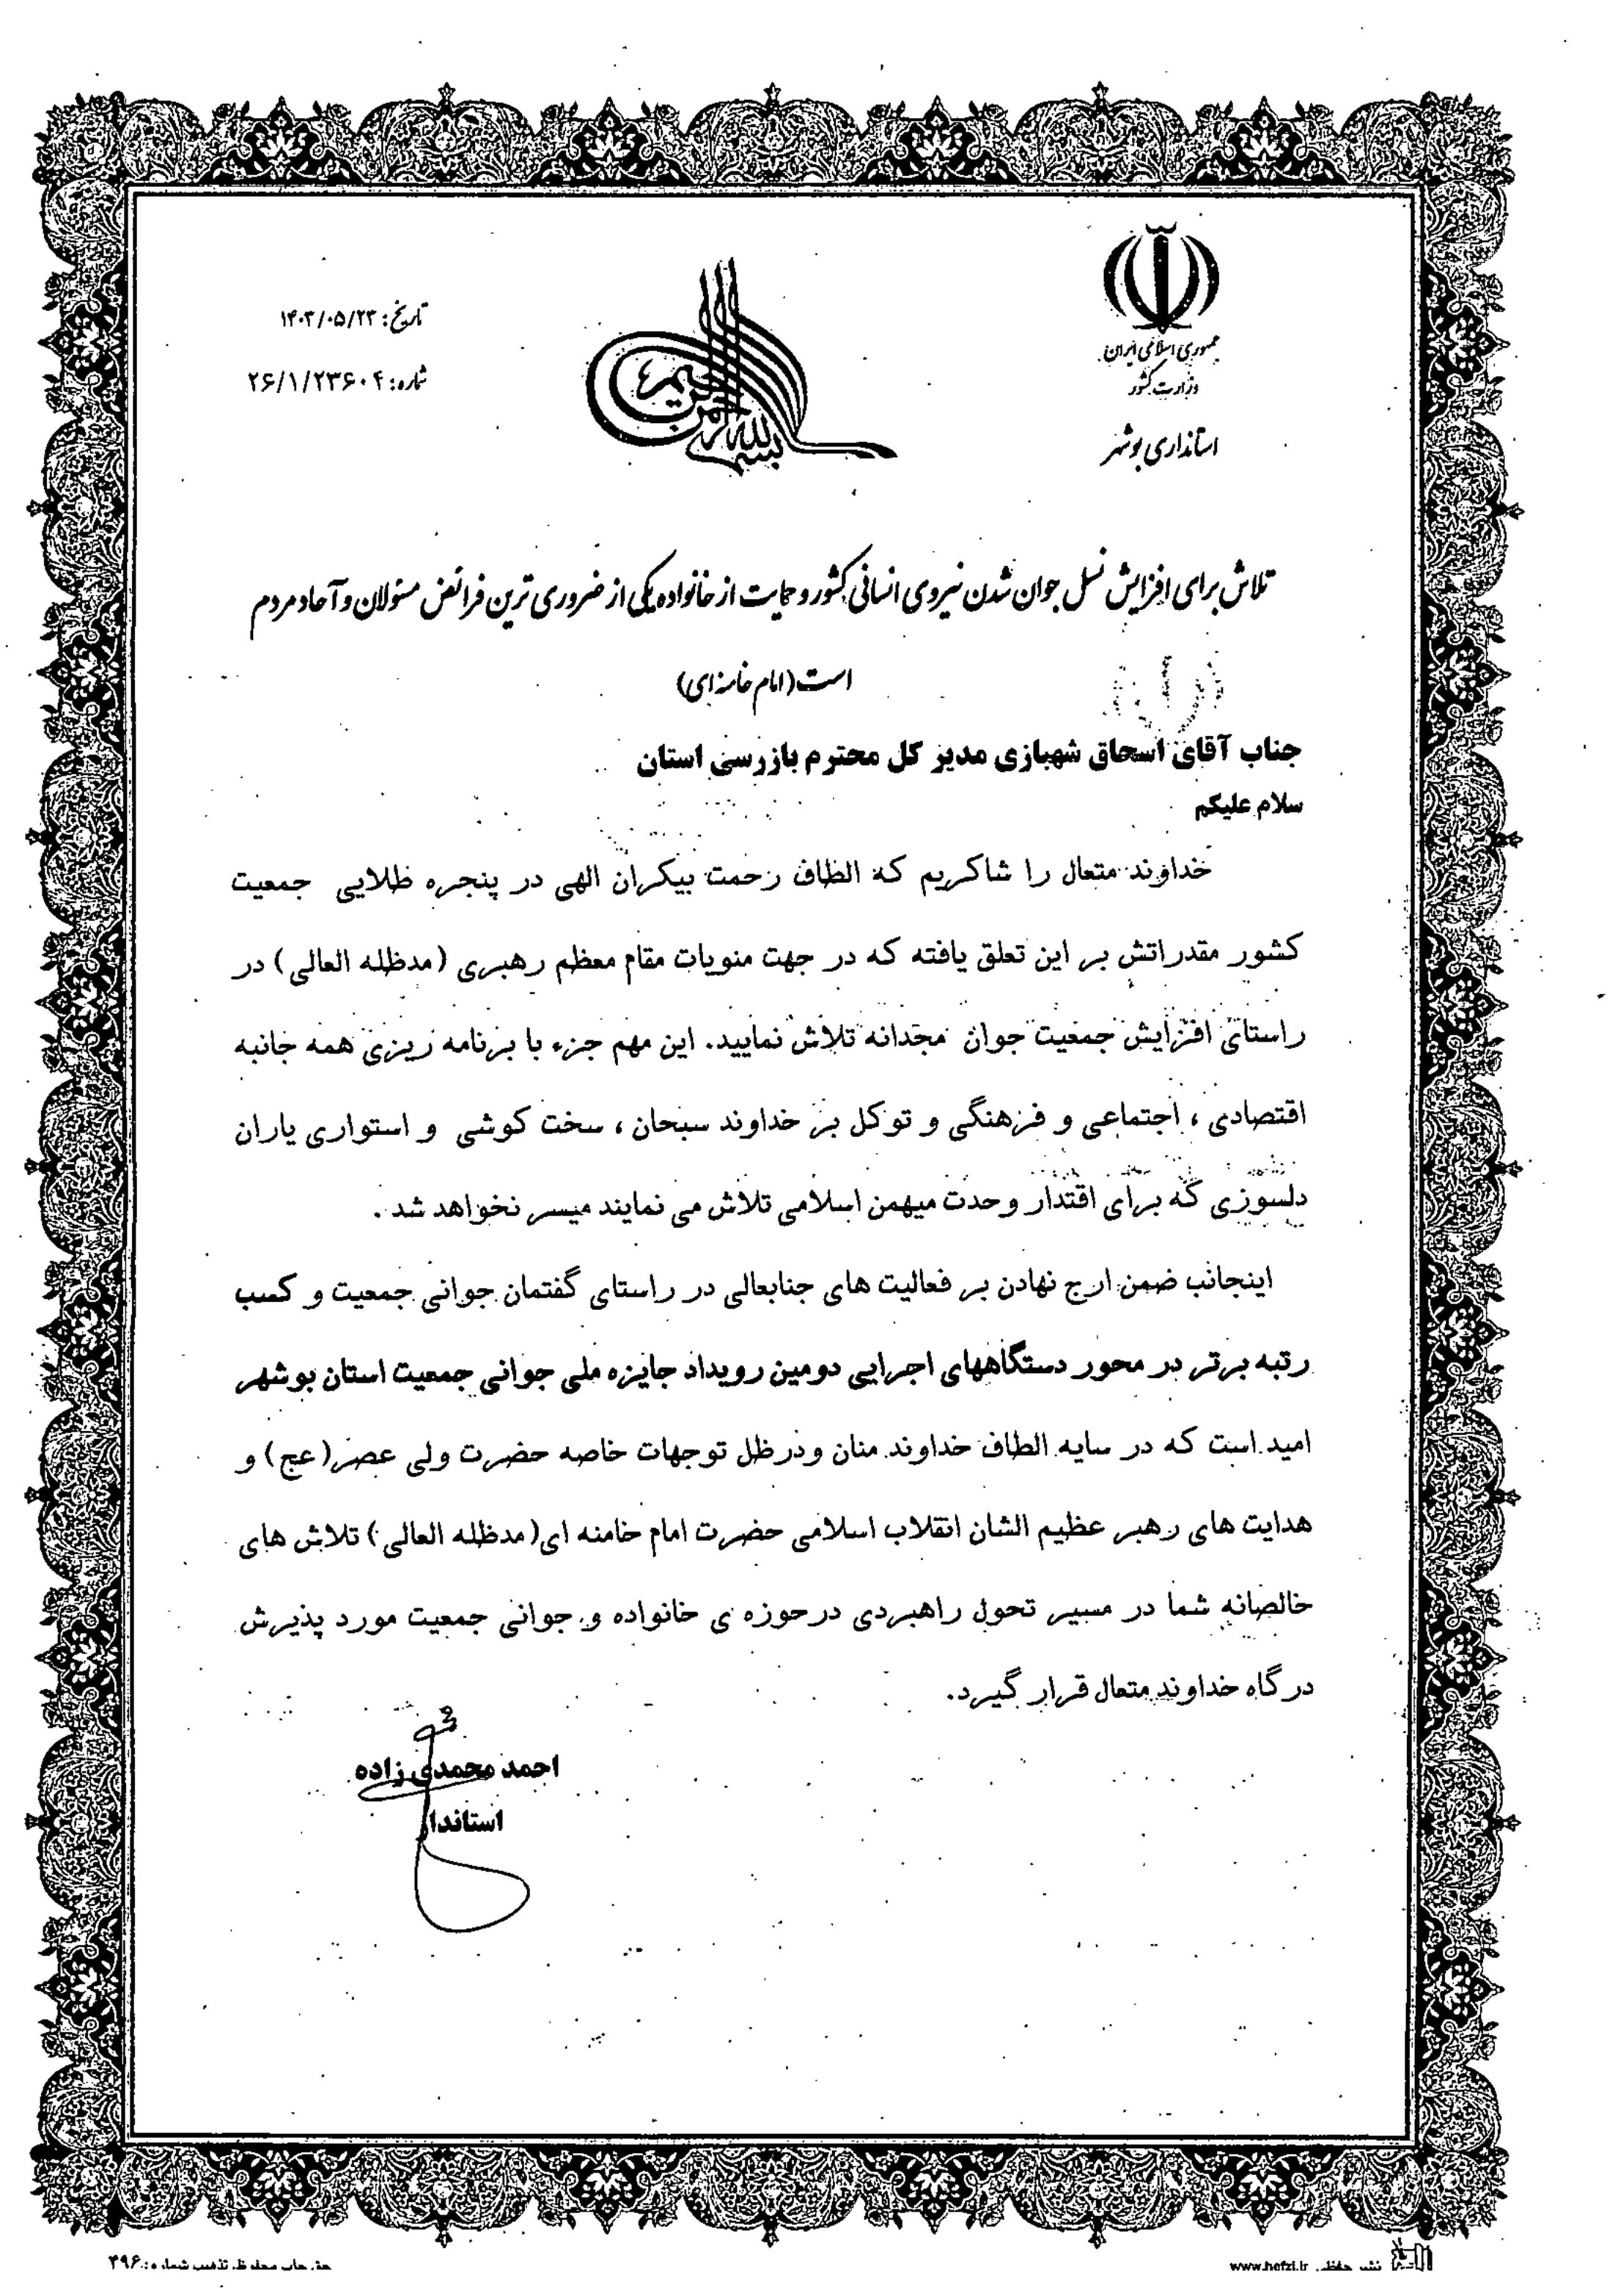 جمهوری اسلامی ایران
وزارت کشور
استانداری بوشهر
بسم الله الرحمن الرحیم
تاریخ: ۱۴۰۳/۰۵/۲۳
شماره: ۲۶/۱/۲۳۶۰۴
تلاش برای افزایش نسل جوان شدن نیروی انسانی کشور و حمایت از خانواده یکی از ضروری ترین فرائض مسئولان و آحاد مردم
است (امام خامنه‌ای)
جناب آقای اسحاق شهبازی مدیر کل محترم بازرسی استان
سلام علیکم
خداوند متعال را شاکریم که الطاف رحمت بیکران الهی در پنجره طلایی جمعیت
کشور مقدراتش بر این تعلق یافته که در جهت منویات مقام معظم رهبری (مدظله العالی) در
راستای افزایش جمعیت جوان مجدانه تلاش نمایید. این مهم جزء با برنامه ریزی همه جانبه
اقتصادی ، اجتماعی و فرهنگی و توکل بر خداوند سبحان ، سخت کوشی و استواری یاران
دلسوزی که برای اقتدار وحدت میهمن اسلامی تلاش می نمایند میسر نخواهد شد .
اینجانب ضمن ارج نهادن بر فعالیت های جنابعالی در راستای گفتمان جوانی جمعیت و کسب
رتبه برتر در محور دستگاههای اجرایی دومین رویداد جایزه ملی جوانی جمعیت استان بوشهر
امید است که در سایه الطاف خداوند منان ودرظل توجهات خاصه حضرت ولی عصر(عج) و
هدایت های رهبر عظیم الشان انقلاب اسلامی حضرت امام خامنه ای(مدظله العالی) تلاش های
خالصانه شما در مسیر تحول راهبردی درحوزه ی خانواده و جوانی جمعیت مورد پذیرش
درگاه خداوند متعال قرار گیرد.
احمد محمدی زاده
استاندار
نشر حفظی www.hefzi.ir
حق چاپ محفوظ تذهیب شماره: ۳۹۶